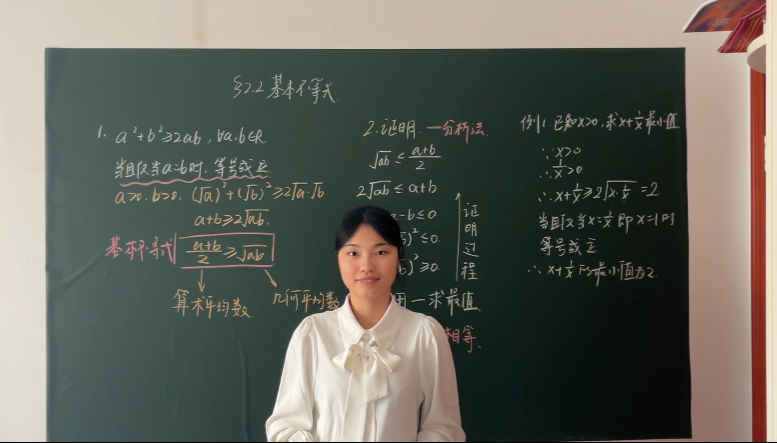 §2.2 基本不等式
1. a²+b²≥2ab, ∀a.b∈R
当且仅当a=b时, 等号成立
a>0.b>0, (√a)²+(√b)²≥2√a·√b
a+b≥2√ab.
基本不等式 (a+b)/2≥√ab
算术平均数 几何平均数
2.证明.—分析法.
√ab≤(a+b)/2
2√ab≤a+b
-b≤0
)²≤0
)²≥0
证明过程
用—求最值
相等.
例1.已知x>0,求x+1/x最小值
∵x>0
∴1/x>0
∴x+1/x≥2√(x·1/x)=2
当且仅当x=1/x即x=1时
等号成立
∴x+1/x的最小值为2.